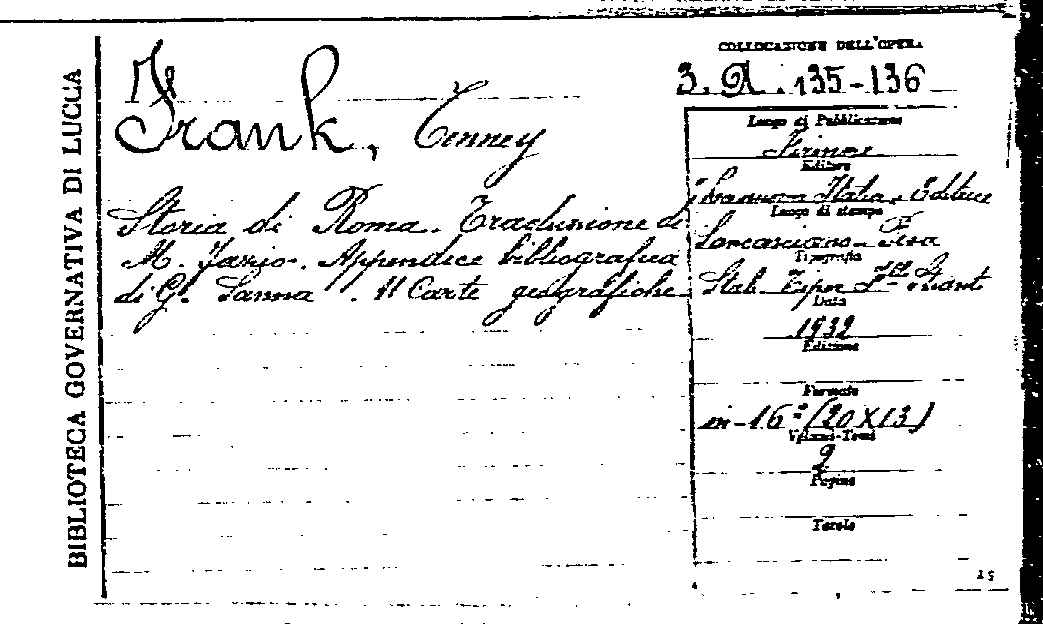 BIBLIOTECA GOVERNATIVA DI LUCCA
COLLOCAZIONE DELL'OPERA
3. A. 135-136
Frank, Tenney
Storia di Roma. Traduzione di
M. Fazio. Appendice bibliografica
di G. Sanna. 11 Carte geografiche
Luogo di Pubblicazione
Firenze
Editore
Italia, Editrice
Luogo di stampa
Tipografia
Stab. Tipog.
Data
1932
Edizione
Formato
in-16º (20x13)
Volumi-Tomi
2
Pagine
Tavole
15